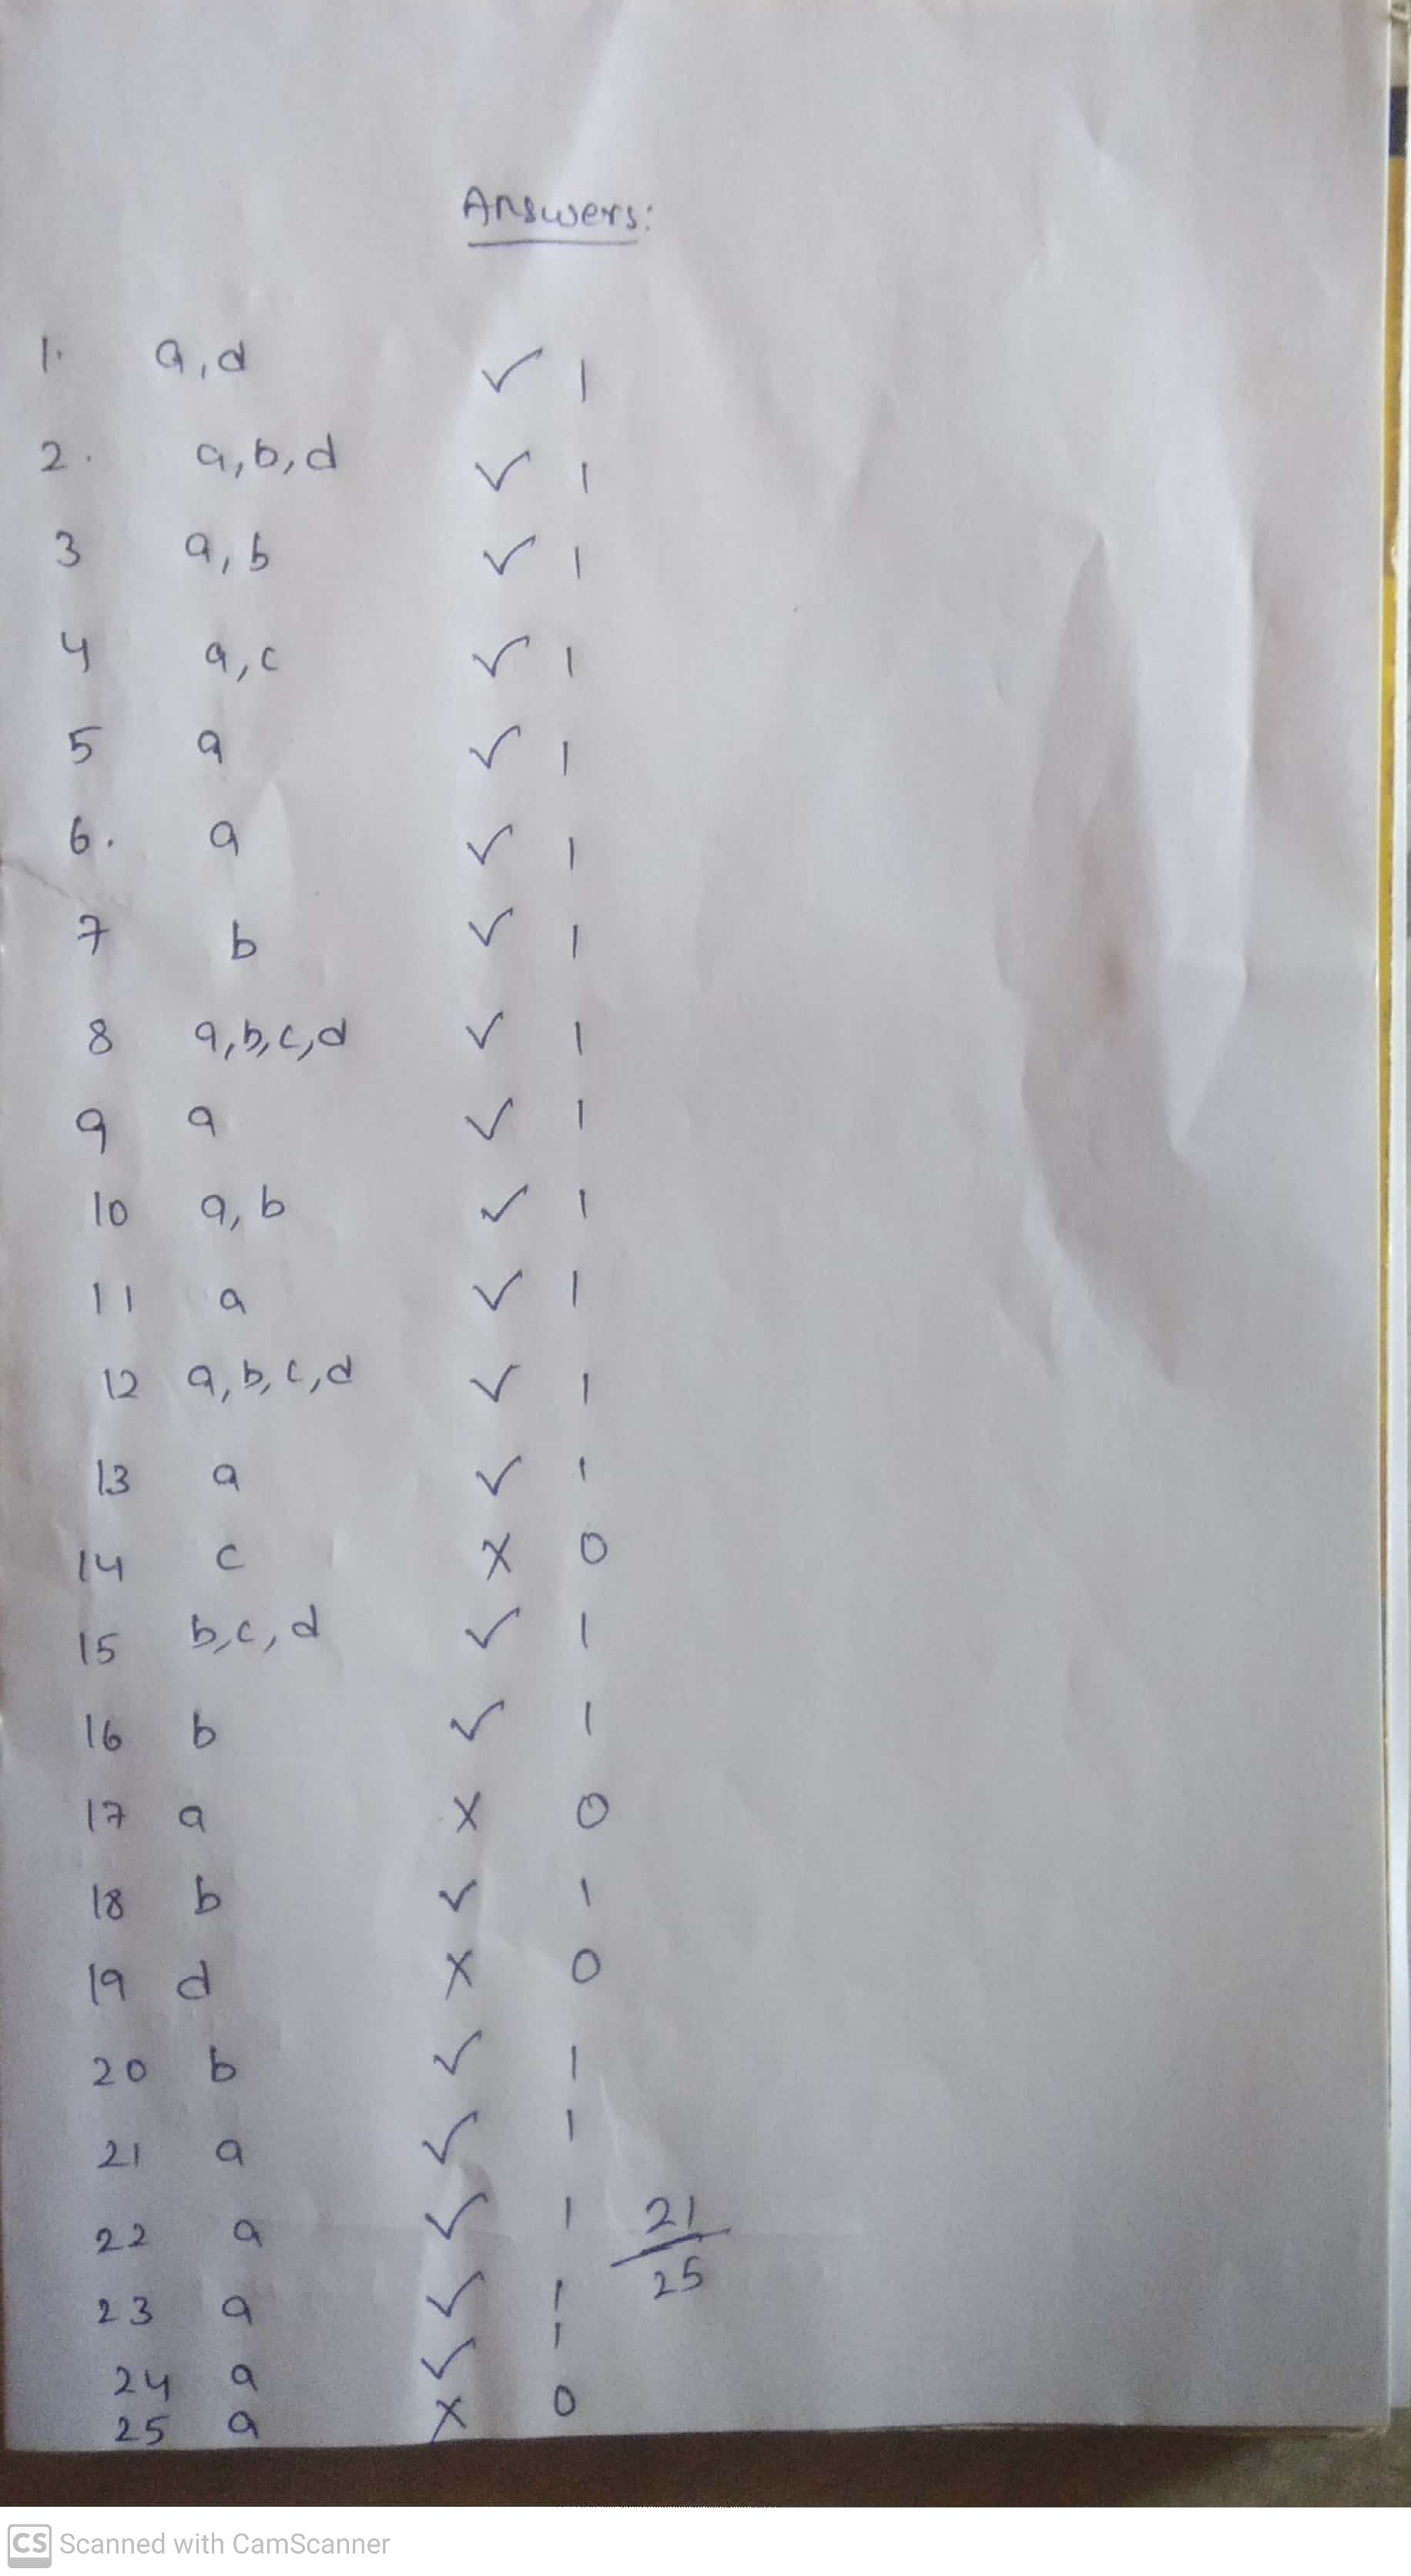 Answers:
1. a, d ✓ 1
2. a, b, d ✓ 1
3 a, b ✓ 1
4 a, c ✓ 1
5 a ✓ 1
6. a ✓ 1
7 b ✓ 1
8 a, b, c, d ✓ 1
9 a ✓ 1
10 a, b ✓ 1
11 a ✓ 1
12 a, b, c, d ✓ 1
13 a ✓ 1
14 c X 0
15 b, c, d ✓ 1
16 b ✓ 1
17 a X 0
18 b ✓ 1
19 d X 0
20 b ✓ 1
21 a ✓ 1
22 a ✓ 1
21
25
23 a ✓ 1
24 a ✓ 1
25 a X 0
CS Scanned with CamScanner